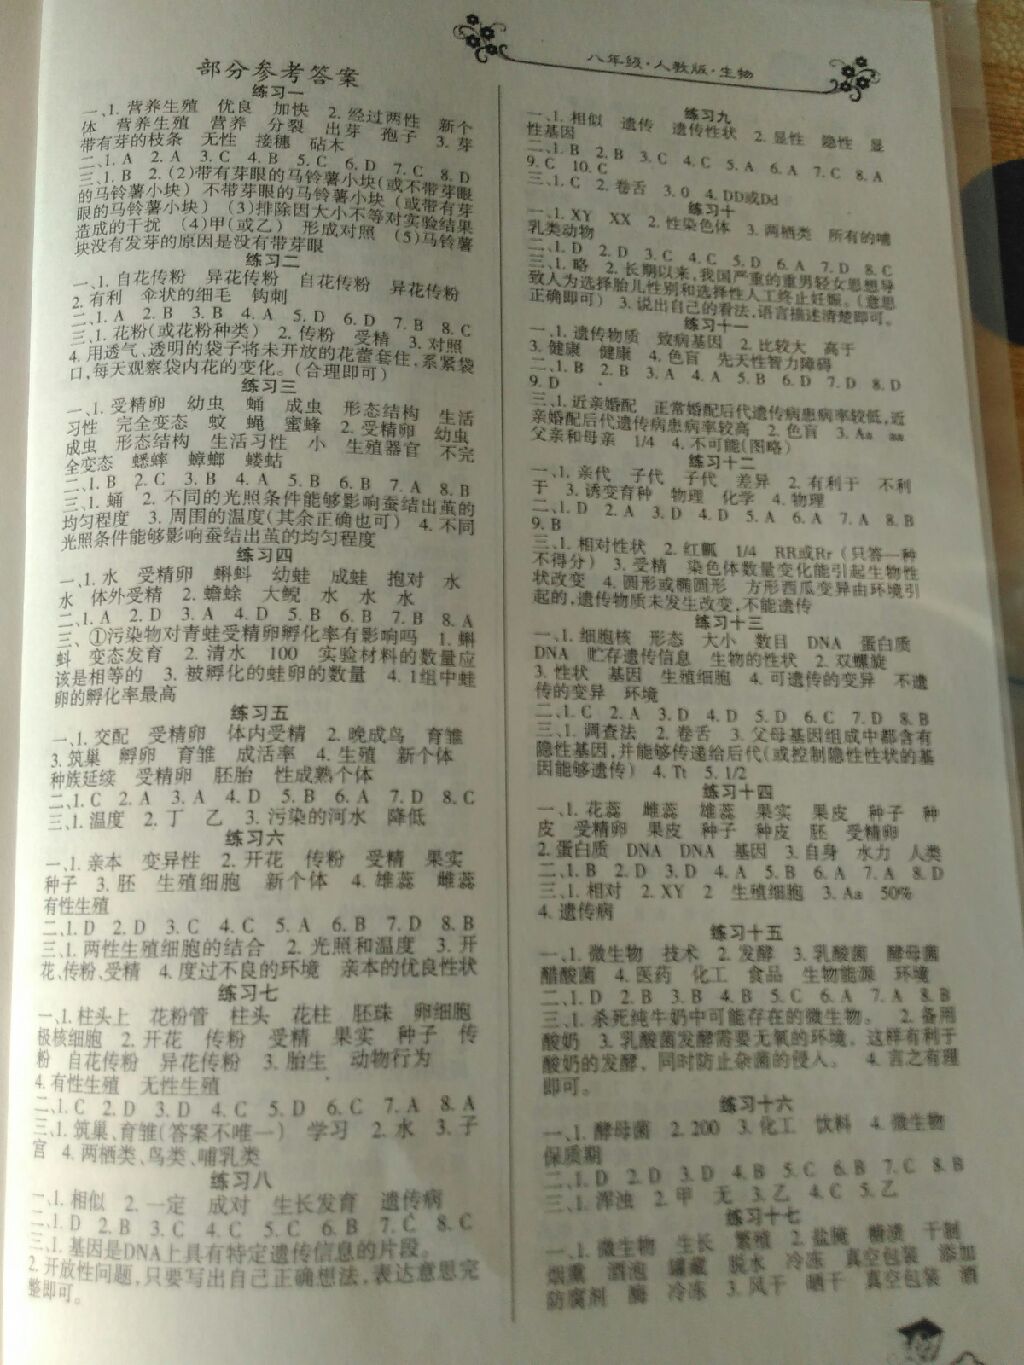 部分参考答案
练习一
一、1. 营养生殖 优良 加快 2. 经过两性 新个
体 营养生殖 营养 分裂 出芽 孢子 3. 芽
带有芽的枝条 无性 接穗 砧木
二、1. A 2. A 3. C 4. B 5. C 6. D 7. C 8. D
三、1. B 2. (2)带有芽眼的马铃薯小块(或不带芽眼
的马铃薯小块) 不带芽眼的马铃薯小块(或带有芽
眼的马铃薯小块) (3)排除因大小不等对实验结果
造成的干扰 (4)甲(或乙) 形成对照 (5)马铃薯
块没有发芽的原因是没有带芽眼
练习二
一、1. 自花传粉 异花传粉 自花传粉 异花传粉
2. 有利 伞状的细毛 钩刺
二、1. A 2. B 3. B 4. A 5. D 6. D 7. B 8. C
三、1. 花粉(或花粉种类) 2. 传粉 受精 3. 对照
4. 用透气、透明的袋子将未开放的花蕾套住,系紧袋
口,每天观察袋内花的变化。(合理即可)
练习三
一、1. 受精卵 幼虫 蛹 成虫 形态结构 生活
习性 完全变态 蚊 蝇 蜜蜂 2. 受精卵 幼虫
成虫 形态结构 生活习性 小 生殖器官 不完
全变态 蟋蟀 蟑螂 蝼蛄
二、1. B 2. C 3. B 4. A 5. B 6. B 7. A 8. B
三、1. 蛹 2. 不同的光照条件能够影响蚕结出茧的
均匀程度 3. 周围的温度(其余正确也可) 4. 不同
光照条件能够影响蚕结出茧的均匀程度
练习四
一、1. 水 受精卵 蝌蚪 幼蛙 成蛙 抱对 水
水 体外受精 2. 蟾蜍 大鲵 水 水 水
二、1. A 2. D 3. A 4. D 5. B 6. B 7. B 8. A
三、①污染物对青蛙受精卵孵化率有影响吗 1. 蝌
蚪 变态发育 2. 清水 100 实验材料的数量应
该是相等的 3. 被孵化的蛙卵的数量 4. 1组中蛙
卵的孵化率最高
练习五
一、1. 交配 受精卵 体内受精 2. 晚成鸟 育雏
3. 筑巢 孵卵 育雏 成活率 4. 生殖 新个体
种族延续 受精卵 胚胎 性成熟个体
二、1. C 2. A 3. A 4. D 5. B 6. A 7. D 8. C
三、1. 温度 2. 丁 乙 3. 污染的河水 降低
练习六
一、1. 亲本 变异性 2. 开花 传粉 受精 果实
种子 3. 胚 生殖细胞 新个体 4. 雄蕊 雌蕊
有性生殖
二、1. D 2. D 3. C 4. C 5. A 6. B 7. D 8. B
三、1. 两性生殖细胞的结合 2. 光照和温度 3. 开
花、传粉、受精 4. 度过不良的环境 亲本的优良性状
练习七
一、1. 柱头上 花粉管 柱头 花柱 胚珠 卵细胞
极核细胞 2. 开花 传粉 受精 果实 种子 传
粉 自花传粉 异花传粉 3. 胎生 动物行为
4. 有性生殖 无性生殖
二、1. C 2. D 3. D 4. C 5. D 6. C 7. A 8. A
三、1. 筑巢、育雏(答案不唯一) 学习 2. 水 3. 子
宫 4. 两栖类、鸟类、哺乳类
练习八
一、1. 相似 2. 一定 成对 生长发育 遗传病
二、1. D 2. B 3. C 4. C 5. C 6. B 7. C 8. C
三、1. 基因是DNA上具有特定遗传信息的片段。
2. 开放性问题,只要写出自己正确想法,表达意思完
整即可。
八年级·人教版·生物
练习九
一、1. 相似 遗传 遗传性状 2. 显性 隐性 显
性基因
二、1. B 2. B 3. C 4. C 5. A 6. A 7. C 8. A
9. C 10. C
三、1. C 2. 卷舌 3. 0 4. DD或Dd
练习十
一、1. XY XX 2. 性染色体 3. 两栖类 所有的哺
乳类动物
二、1. D 2. D 3. C 4. C 5. D 6. A 7. D 8. C
三、1. 略 2. 长期以来,我国严重的重男轻女思想导
致人为选择胎儿性别和选择性人工终止妊娠。(意思
正确即可) 3. 说出自己的看法,语言描述清楚即可。
练习十一
一、1. 遗传物质 致病基因 2. 比较大 高于
3. 健康 健康 4. 色盲 先天性智力障碍
二、1. B 2. B 3. A 4. A 5. B 6. D 7. D 8. D
9. D
三、1. 近亲婚配 正常婚配后代遗传病患病率较低,近
亲婚配后代遗传病患病率较高 2. 色盲 3. Aa aa
父亲和母亲 1/4 4. 不可能(图略)
练习十二
一、1. 亲代 子代 子代 差异 2. 有利于 不利
于 3. 诱变育种 物理 化学 4. 物理
二、1. D 2. A 3. D 4. D 5. A 6. A 7. A 8. B
9. B
三、1. 相对性状 2. 红瓤 1/4 RR或Rr(只答一种
不得分) 3. 受精 染色体数量变化能引起生物性
状改变 4. 圆形或椭圆形 方形西瓜变异由环境引
起的,遗传物质未发生改变,不能遗传
练习十三
一、1. 细胞核 形态 大小 数目 DNA 蛋白质
DNA 贮存遗传信息 生物的性状 2. 双螺旋
3. 性状 基因 生殖细胞 4. 可遗传的变异 不遗
传的变异 环境
二、1. C 2. A 3. D 4. D 5. D 6. C 7. D 8. B
三、1. 调查法 2. 卷舌 3. 父母基因组成中都含有
隐性基因,并能够传递给后代(或控制隐性性状的基
因能够遗传) 4. Tt 5. 1/2
练习十四
一、1. 花蕊 雌蕊 雄蕊 果实 果皮 种子 种
皮 受精卵 果皮 种子 种皮 胚 受精卵
2. 蛋白质 DNA DNA 基因 3. 自身 水力 人类
二、1. B 2. D 3. D 4. A 5. B 6. A 7. A 8. D
三、1. 相对 2. XY 2 生殖细胞 3. Aa 50%
4. 遗传病
练习十五
一、1. 微生物 技术 2. 发酵 3. 乳酸菌 酵母菌
醋酸菌 4. 医药 化工 食品 生物能源 环境
二、1. D 2. B 3. B 4. B 5. C 6. A 7. A 8. B
三、1. 杀死纯牛奶中可能存在的微生物。 2. 备用
酸奶 3. 乳酸菌发酵需要无氧的环境。这样有利于
酸奶的发酵,同时防止杂菌的侵入。 4. 言之有理
即可。
练习十六
一、1. 酵母菌 2. 200 3. 化工 饮料 4. 微生物
保质期
二、1. D 2. D 3. D 4. B 5. C 6. B 7. C 8. B
三、1. 浑浊 2. 甲 无 3. 乙 4. C 5. 乙
练习十七
一、1. 微生物 生长 繁殖 2. 盐腌 糖渍 干制
烟熏 酒泡 罐藏 脱水 冷冻 真空包装 添加
防腐剂 酶 冷冻 3. 风干 晒干 真空包装 酒